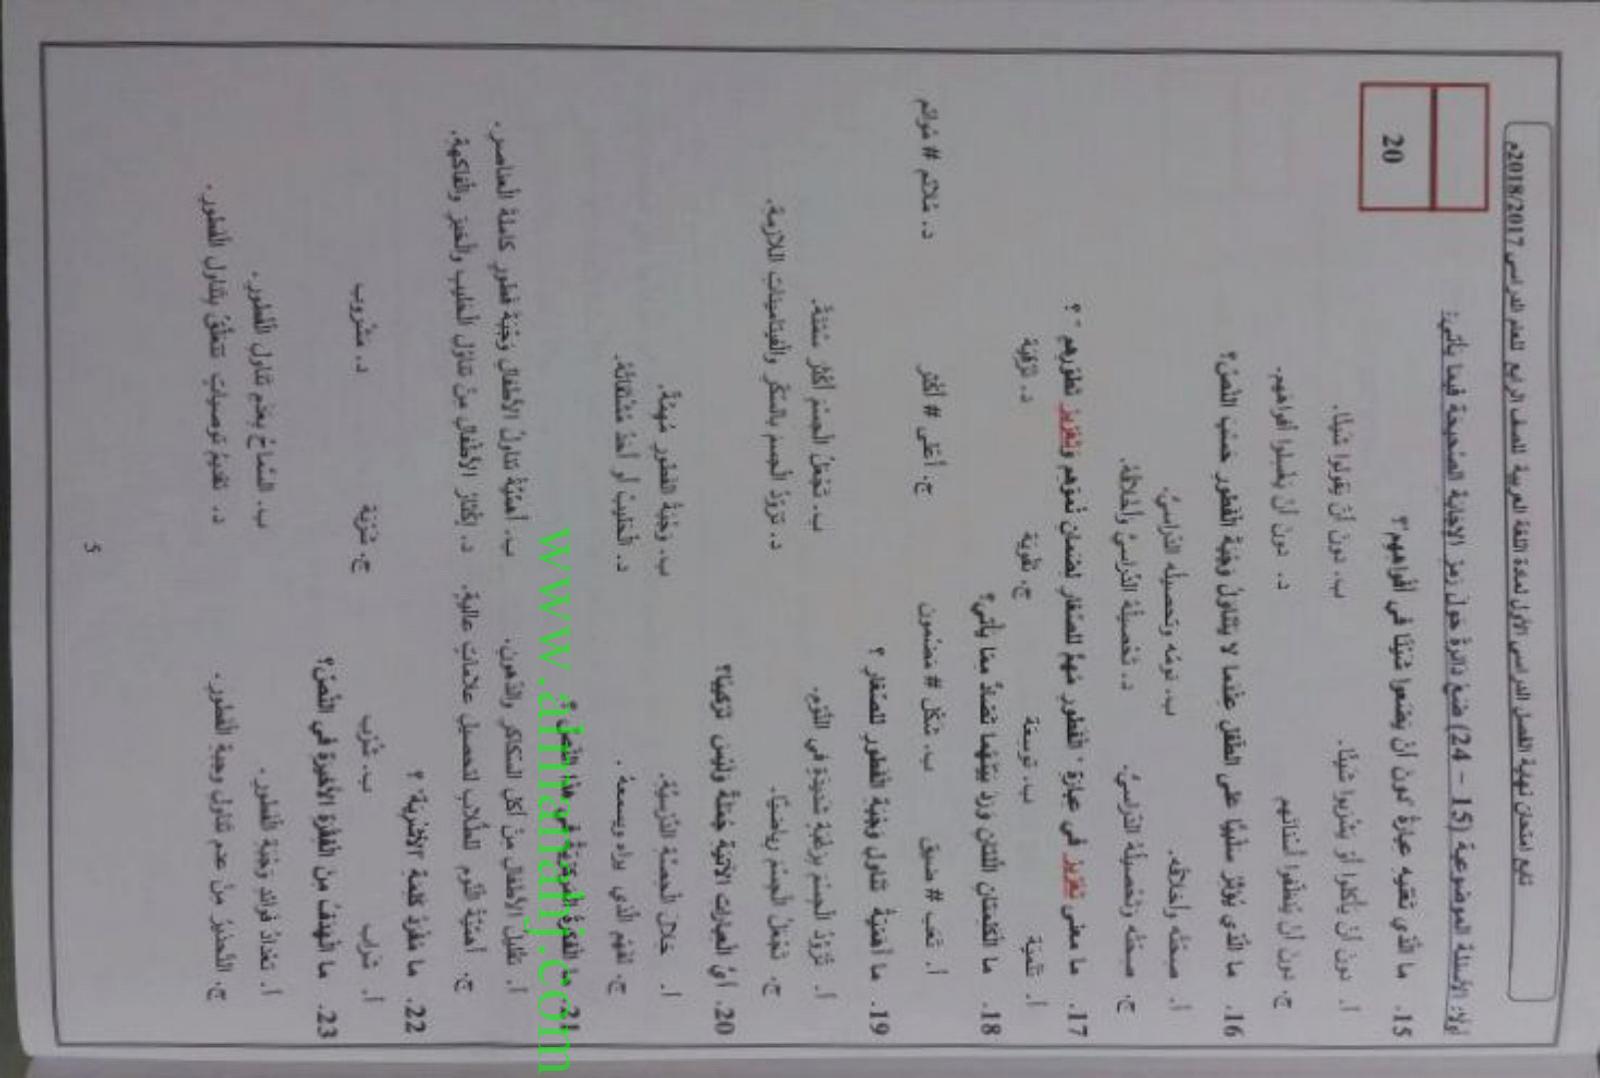 تابع امتحان نهاية الفصل الدراسي الأول لمادة اللغة العربية للصف الرابع للعام الدراسي 2018/2017م
20
أولا: الأسئلة الموضوعية (15 – 24) ضع دائرة حول رمز الإجابة الصحيحة فيما يأتي:
15. ما الذي تعنيه عبارة "دون أن يضعوا شيئا في أفواههم"؟
أ. دون أن يأكلوا أو يشربوا شيئا. ب. دون أن يقولوا شيئا.
ج. دون أن ينظفوا أسنانهم د. دون أن يغسلوا أفواههم.
16. ما الذي يؤثر سلبيا على الطفل عندما لا يتناول وجبة الفطور حسب النص؟
أ. صحته وأخلاقه. ب. نومه وتحصيله الدراسي.
ج. صحته وتحصيله الدراسي. د. تحصيله الدراسي وأخلاقه.
17. ما معنى تعزيز في عبارة " الفطور مهم للصغار لضمان نموهم وتعزيز تطورهم " ؟
أ. تنمية ب. توسعة ج. تقوية د. ترقية
18. ما الكلمتان اللتان ورد بينهما تضاد مما يأتي؟
أ. تعب # ضيق ب. شكل # مضمون ج. أعلى # أكثر د. ملائم # موائم
19. ما أهمية تناول وجبة الفطور للصغار ؟
أ. تزود الجسم برغبة شديدة في النوم. ب. تجعل الجسم أكثر سمنة.
ج. تجعل الجسم رياضيا. د. تزود الجسم بالسكر والفيتامينات اللازمة.
20. أي العبارات الآتية جملة وليس تركيبا؟
أ. خلال الحصة الدرسية. ب. وجبة الفطور مهمة.
ج. لفهم الذي يراه ويسمعه . د. الحليب أو أحد مشتقاته.
21. ما الفكرة الرئيسية في هذا النص ؟
أ. تقليل الأطفال من أكل السكاكر والدهون. ب. أهمية تناول الأطفال وجبة فطور كاملة العناصر.
ج. أهمية النوم للطلاب لتحصيل علامات عالية. د. إكثار الأطفال من تناول الحليب والخبز والفاكهة.
22. ما مفرد كلمة "الأشربة" ؟
أ. شراب ب. شرب ج. شربة د. مشروب
23. ما الهدف من الفقرة الأخيرة في النص؟
أ. تعداد فوائد وجبة الفطور . ب. السماح بعدم تناول الفطور .
ج. التحذير من عدم تناول وجبة الفطور . د. تقديم توصيات تتعلق بتناول الفطور .
5
www.almanahj.com